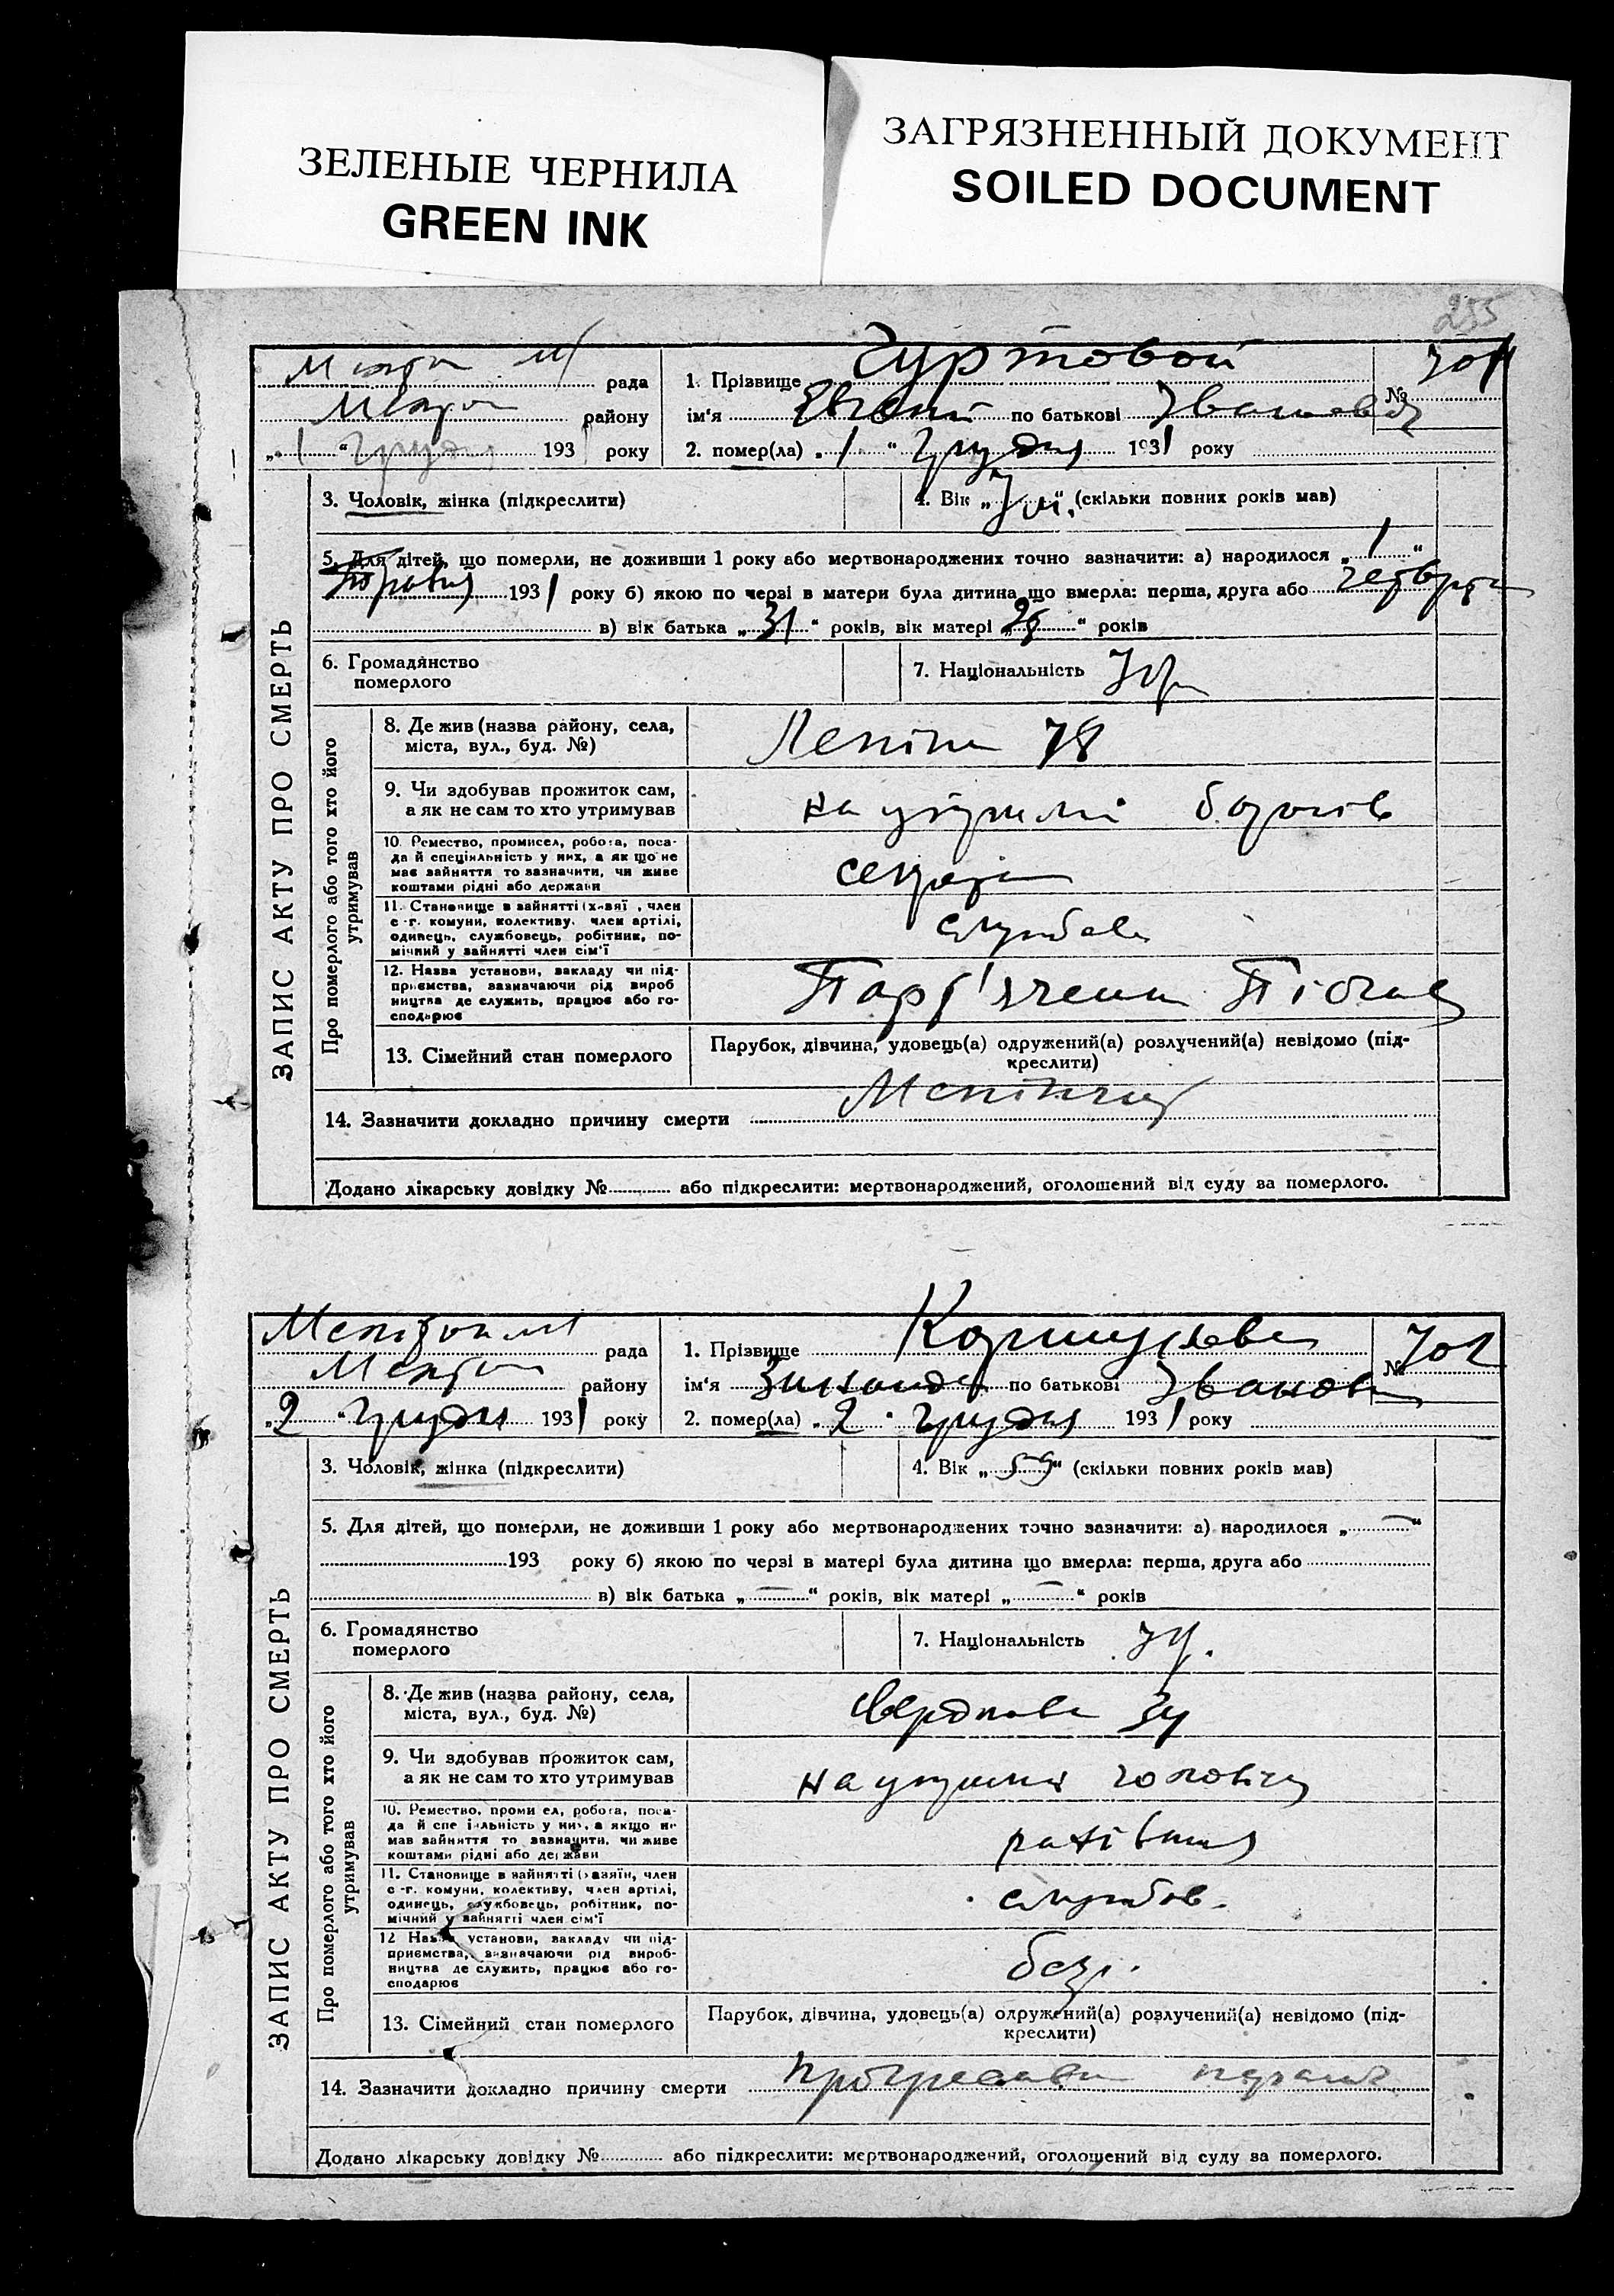 ЗЕЛЕНЫЕ ЧЕРНИЛА
GREEN INK
ЗАГРЯЗНЕННЫЙ ДОКУМЕНТ
SOILED DOCUMENT
255
рада
району
„1“ Грудня 193 року
1. Прізвище Гуртовой
№ 701
ім‘я Євгеній по батькові Іванович
2. помер(ла) „1“ Грудня 1931 року
ЗАПИС АКТУ ПРО СМЕРТЬ
3. Чоловік, жінка (підкреслити)
4. Вік „7 м.“ (скільки повних років мав)
5. Для дітей, що померли, не доживши 1 року або мертвонароджених точно зазначити: а) народилося „1“
1931 року б) якою по черзі в матери була дитина що вмерла: перша, друга або четверта
в) вік батька „31“ років, вік матері „“ років
6. Громадянство
померлого
7. Національність Укр
Про померлого або того хто його
утримував
8. Де жив (назва району, села,
міста, вул., буд. №)
Леніна 78
9. Чи здобував прожиток сам,
а як не сам то хто утримував
на утриманні батьків
10. Ремество, промисел, робота, поса-
да й спеціяльність у них, а як що не
має зайняття то зазначити, чи живе
коштами рідні або держави
секретар
11. Становище в зайнятті (хазяї, член
с-г. комуни, колективу, член артілі,
одинець, службовець, робітник, по-
мічний у зайнятті член сім‘ї
службовець
12. Назва установи, закладу чи під-
приємства, зазначаючи рід вироб
ництва де служить, працює або го-
сподарює
13. Сімейний стан померлого
Парубок, дівчина, удовець(а) одружений(а) розлучений(а) невідомо (під-
креслити)
14. Зазначити докладно причину смерти Менінгит
Додано лікарську довідку № або підкреслити: мертвонароджений, оголошений від суду за померлого.
рада
району
„2“ Грудня 1931 року
1. Прізвище
№ 702
ім‘я Зинаида по батькові Іванов
2. помер(ла) „2“ Грудня 1931 року
ЗАПИС АКТУ ПРО СМЕРТЬ
3. Чоловік, жінка (підкреслити)
4. Вік „59“ (скільки повних років мав)
5. Для дітей, що померли, не доживши 1 року або мертвонароджених точно зазначити: а) народилося „—“
193 року б) якою по черзі в матері була дитина що вмерла: перша, друга або
в) вік батька „—“ років, вік матері „—“ років
6. Громадянство
померлого
7. Національність Ук.
Про померлого або того хто його
утримував
8. Де жив (назва району, села,
міста, вул., буд. №)
Свердлова 34
9. Чи здобував прожиток сам,
а як не сам то хто утримував
на утриманні чоловіка
10. Ремество, промисел, робота, поса-
да й спеціяльність у них, а якщо не
мав зайняття то зазначити, чи живе
коштами рідні або держави
рахівник
11. Становище в зайнятті (хазяїн, член
с-г. комуни, колективу, член артілі,
одинець, службовець, робітник, по-
мічний у зайнятті член сім‘ї
службов.
12 Назва установи, закладу чи під-
приємства, зазначаючи рід вироб-
ництва де служить, працює або го-
сподарює
безр.
13. Сімейний стан померлого
Парубок, дівчина, удовець(а) одружений(а) розлучений(а) невідомо (під-
креслити)
14. Зазначити докладно причину смерти
Додано лікарську довідку № або підкреслити: мертвонароджений, оголошений від суду за померлого.